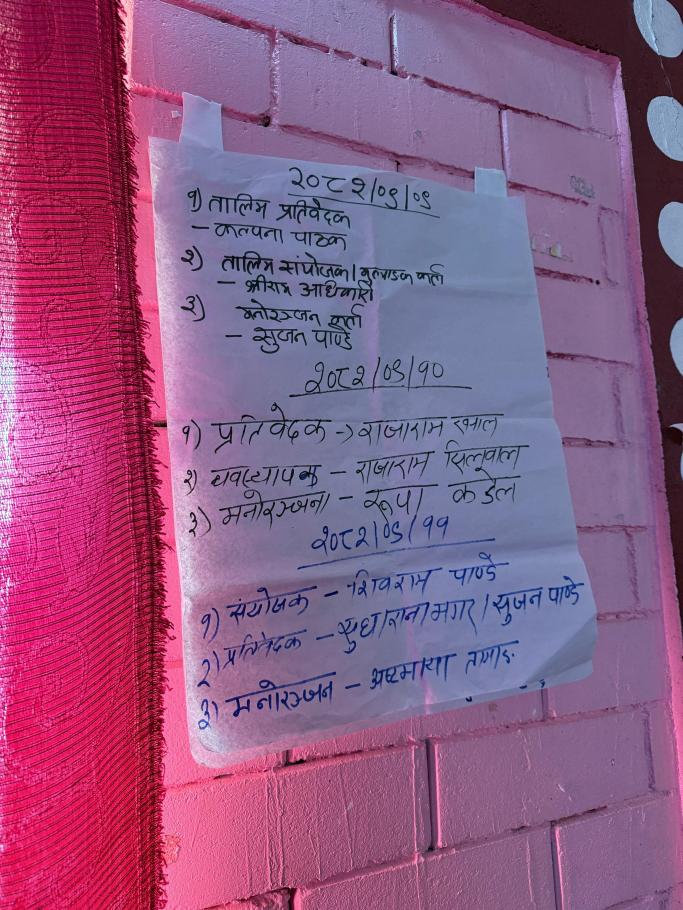 २०८२/०९/०९
१) तालिम प्रतिवेदक
- कल्पना पाठक
२) तालिम संयोजक /
- श्रीराम अधिकारी
३) मनोरञ्जन कर्ता
- सुजन पाण्डे
२०८२/०९/१०
१) प्रतिवेदक → राजाराम
२) व्यवस्थापक - राजाराम सिलवाल
३) मनोरञ्जन - रूपा कडेल
२०८२/०९/११
१) संयोजक - शिवराम पाण्डे
२) प्रतिवेदक - सुधा राना मगर / सुजन पाण्डे
३) मनोरञ्जन - अष्टमाया तामाङ